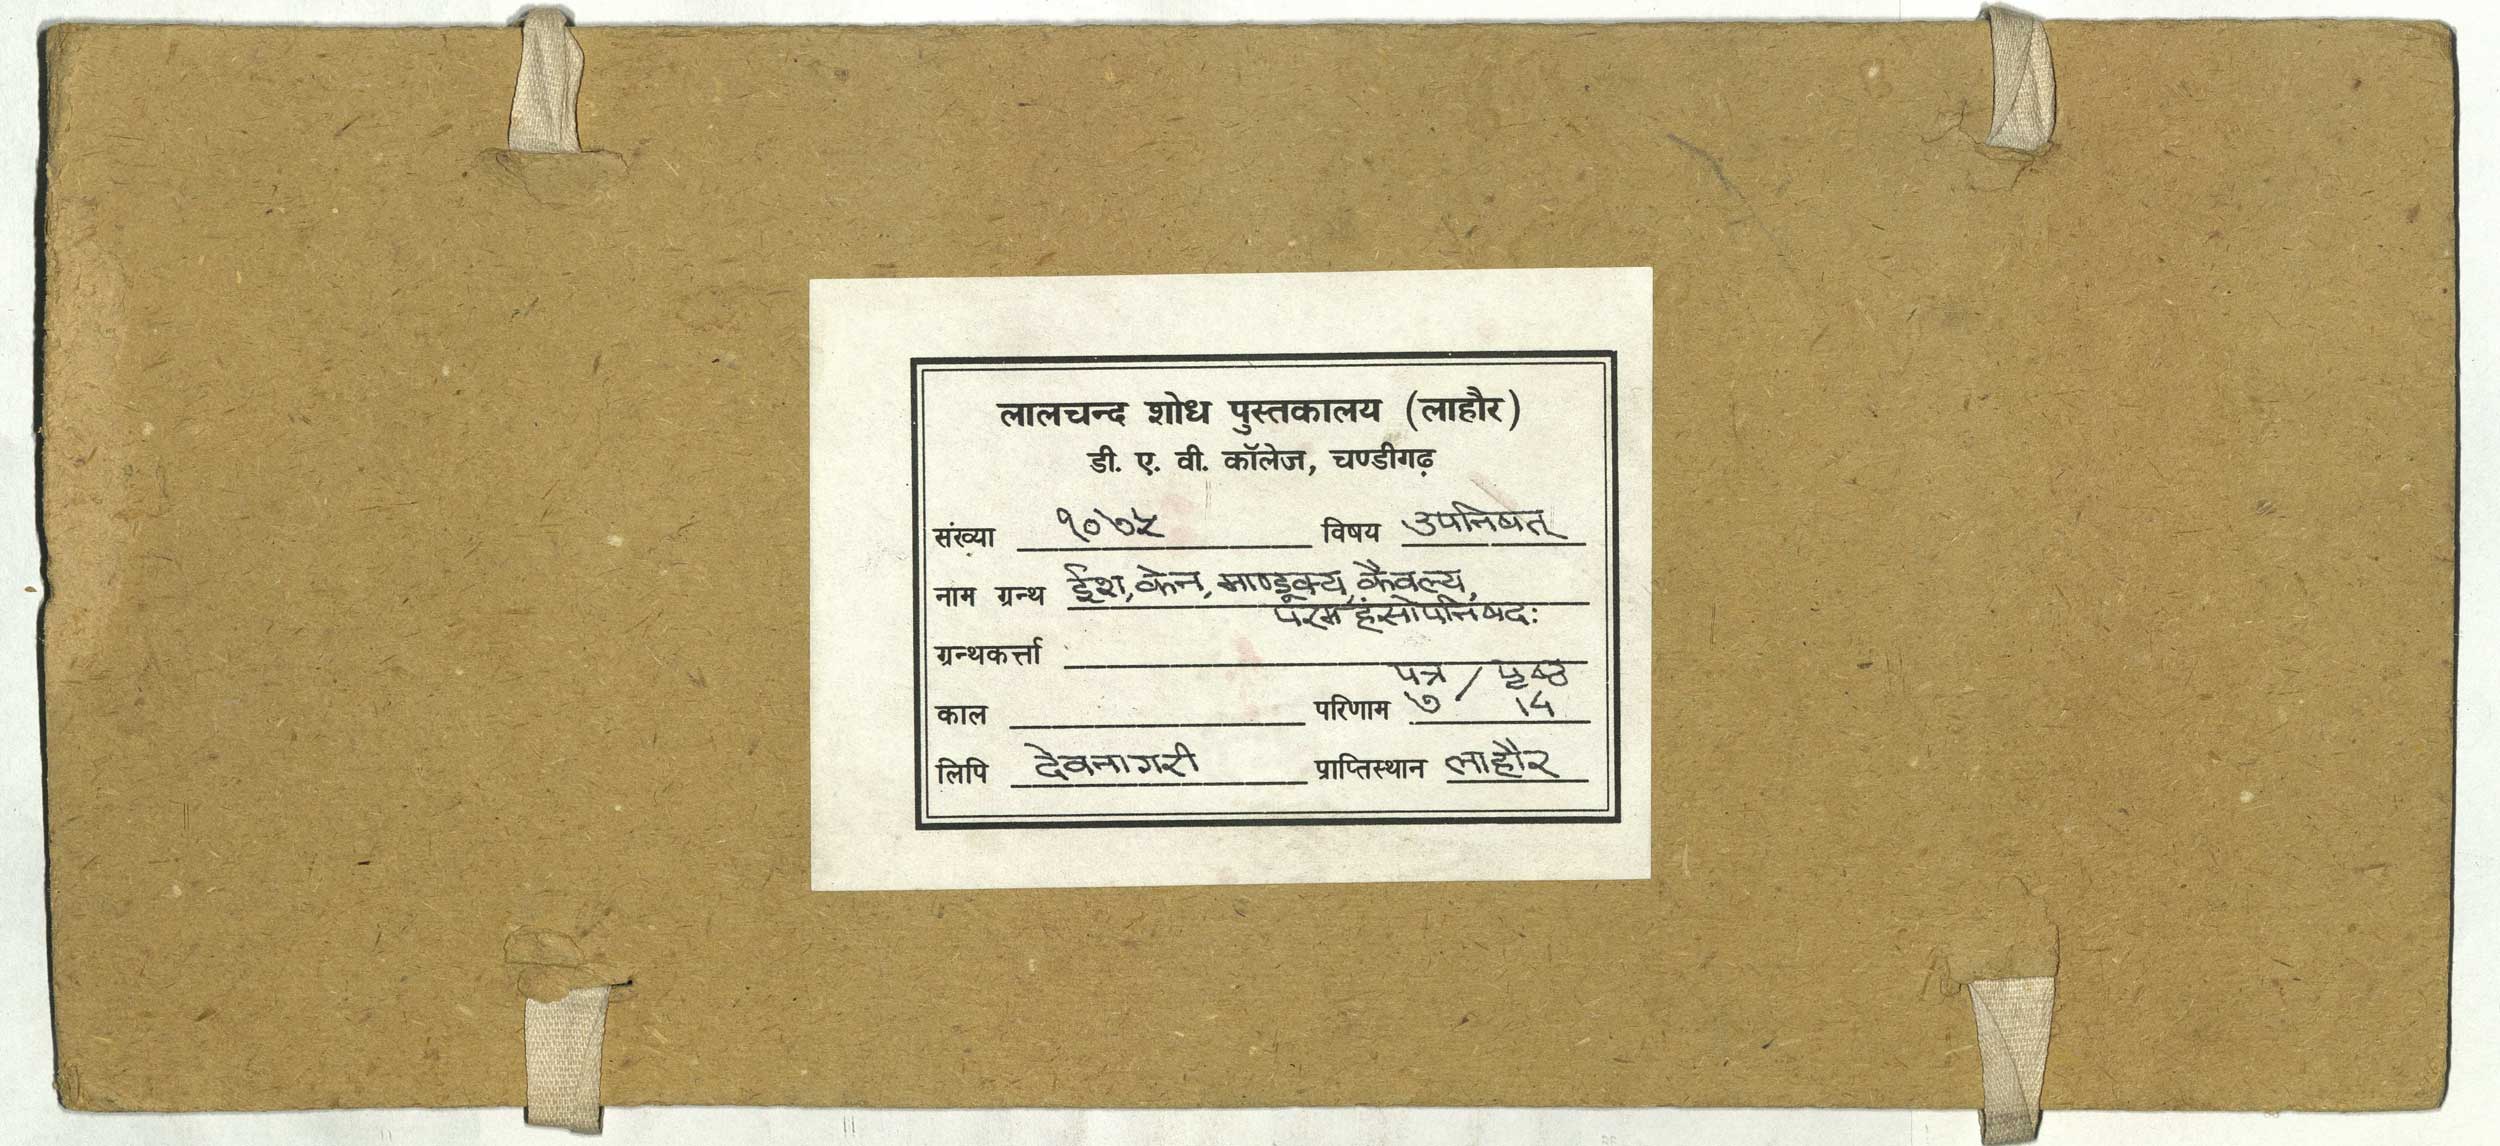 लालचन्द शोध पुस्तकालय (लाहौर)
डी. ए. वी. कॉलेज, चण्डीगढ़
संख्या १०७५ विषय उपनिषत्
नाम ग्रन्थ ईश, केन, माण्डूक्य, कैवल्य,
परमहंसोपनिषद:
ग्रन्थकर्त्ता
पत्र / पृष्ठ
काल परिणाम ७ 14
लिपि देवनागरी प्राप्तिस्थान लाहौर